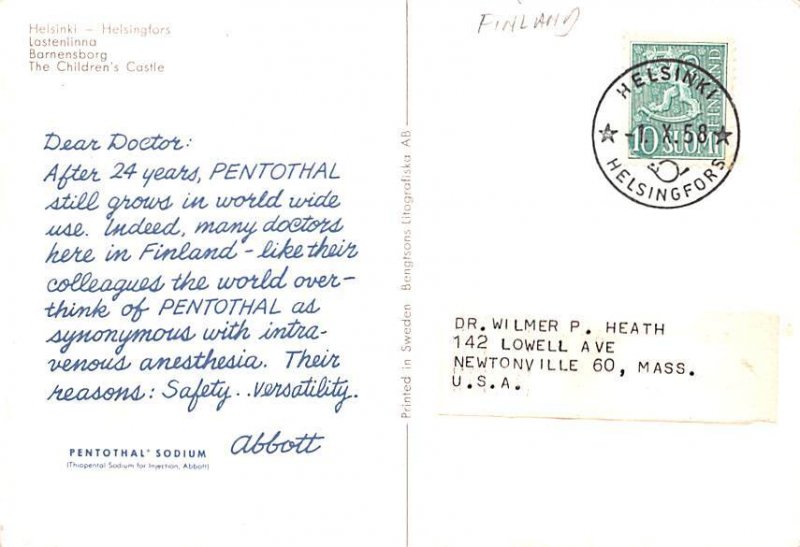 Helsinki – Helsingfors
Lastenlinna
Barnensborg
The Children's Castle
Dear Doctor:
After 24 years, PENTOTHAL
still grows in world wide
use. Indeed, many doctors
here in Finland – like their
colleagues the world over –
think of PENTOTHAL as
synonymous with intra-
venous anesthesia. Their
reasons: Safety..versatility.
Abbott
PENTOTHAL® SODIUM
(Thiopental Sodium for Injection, Abbott)
Printed in Sweden Bengtsons Litografiska AB
FINLAND
HELSINKI
-1.X.58
HELSINGFORS
10 SUOMI
FINLAND
DR. WILMER P. HEATH
142 LOWELL AVE
NEWTONVILLE 60, MASS.
U.S.A.